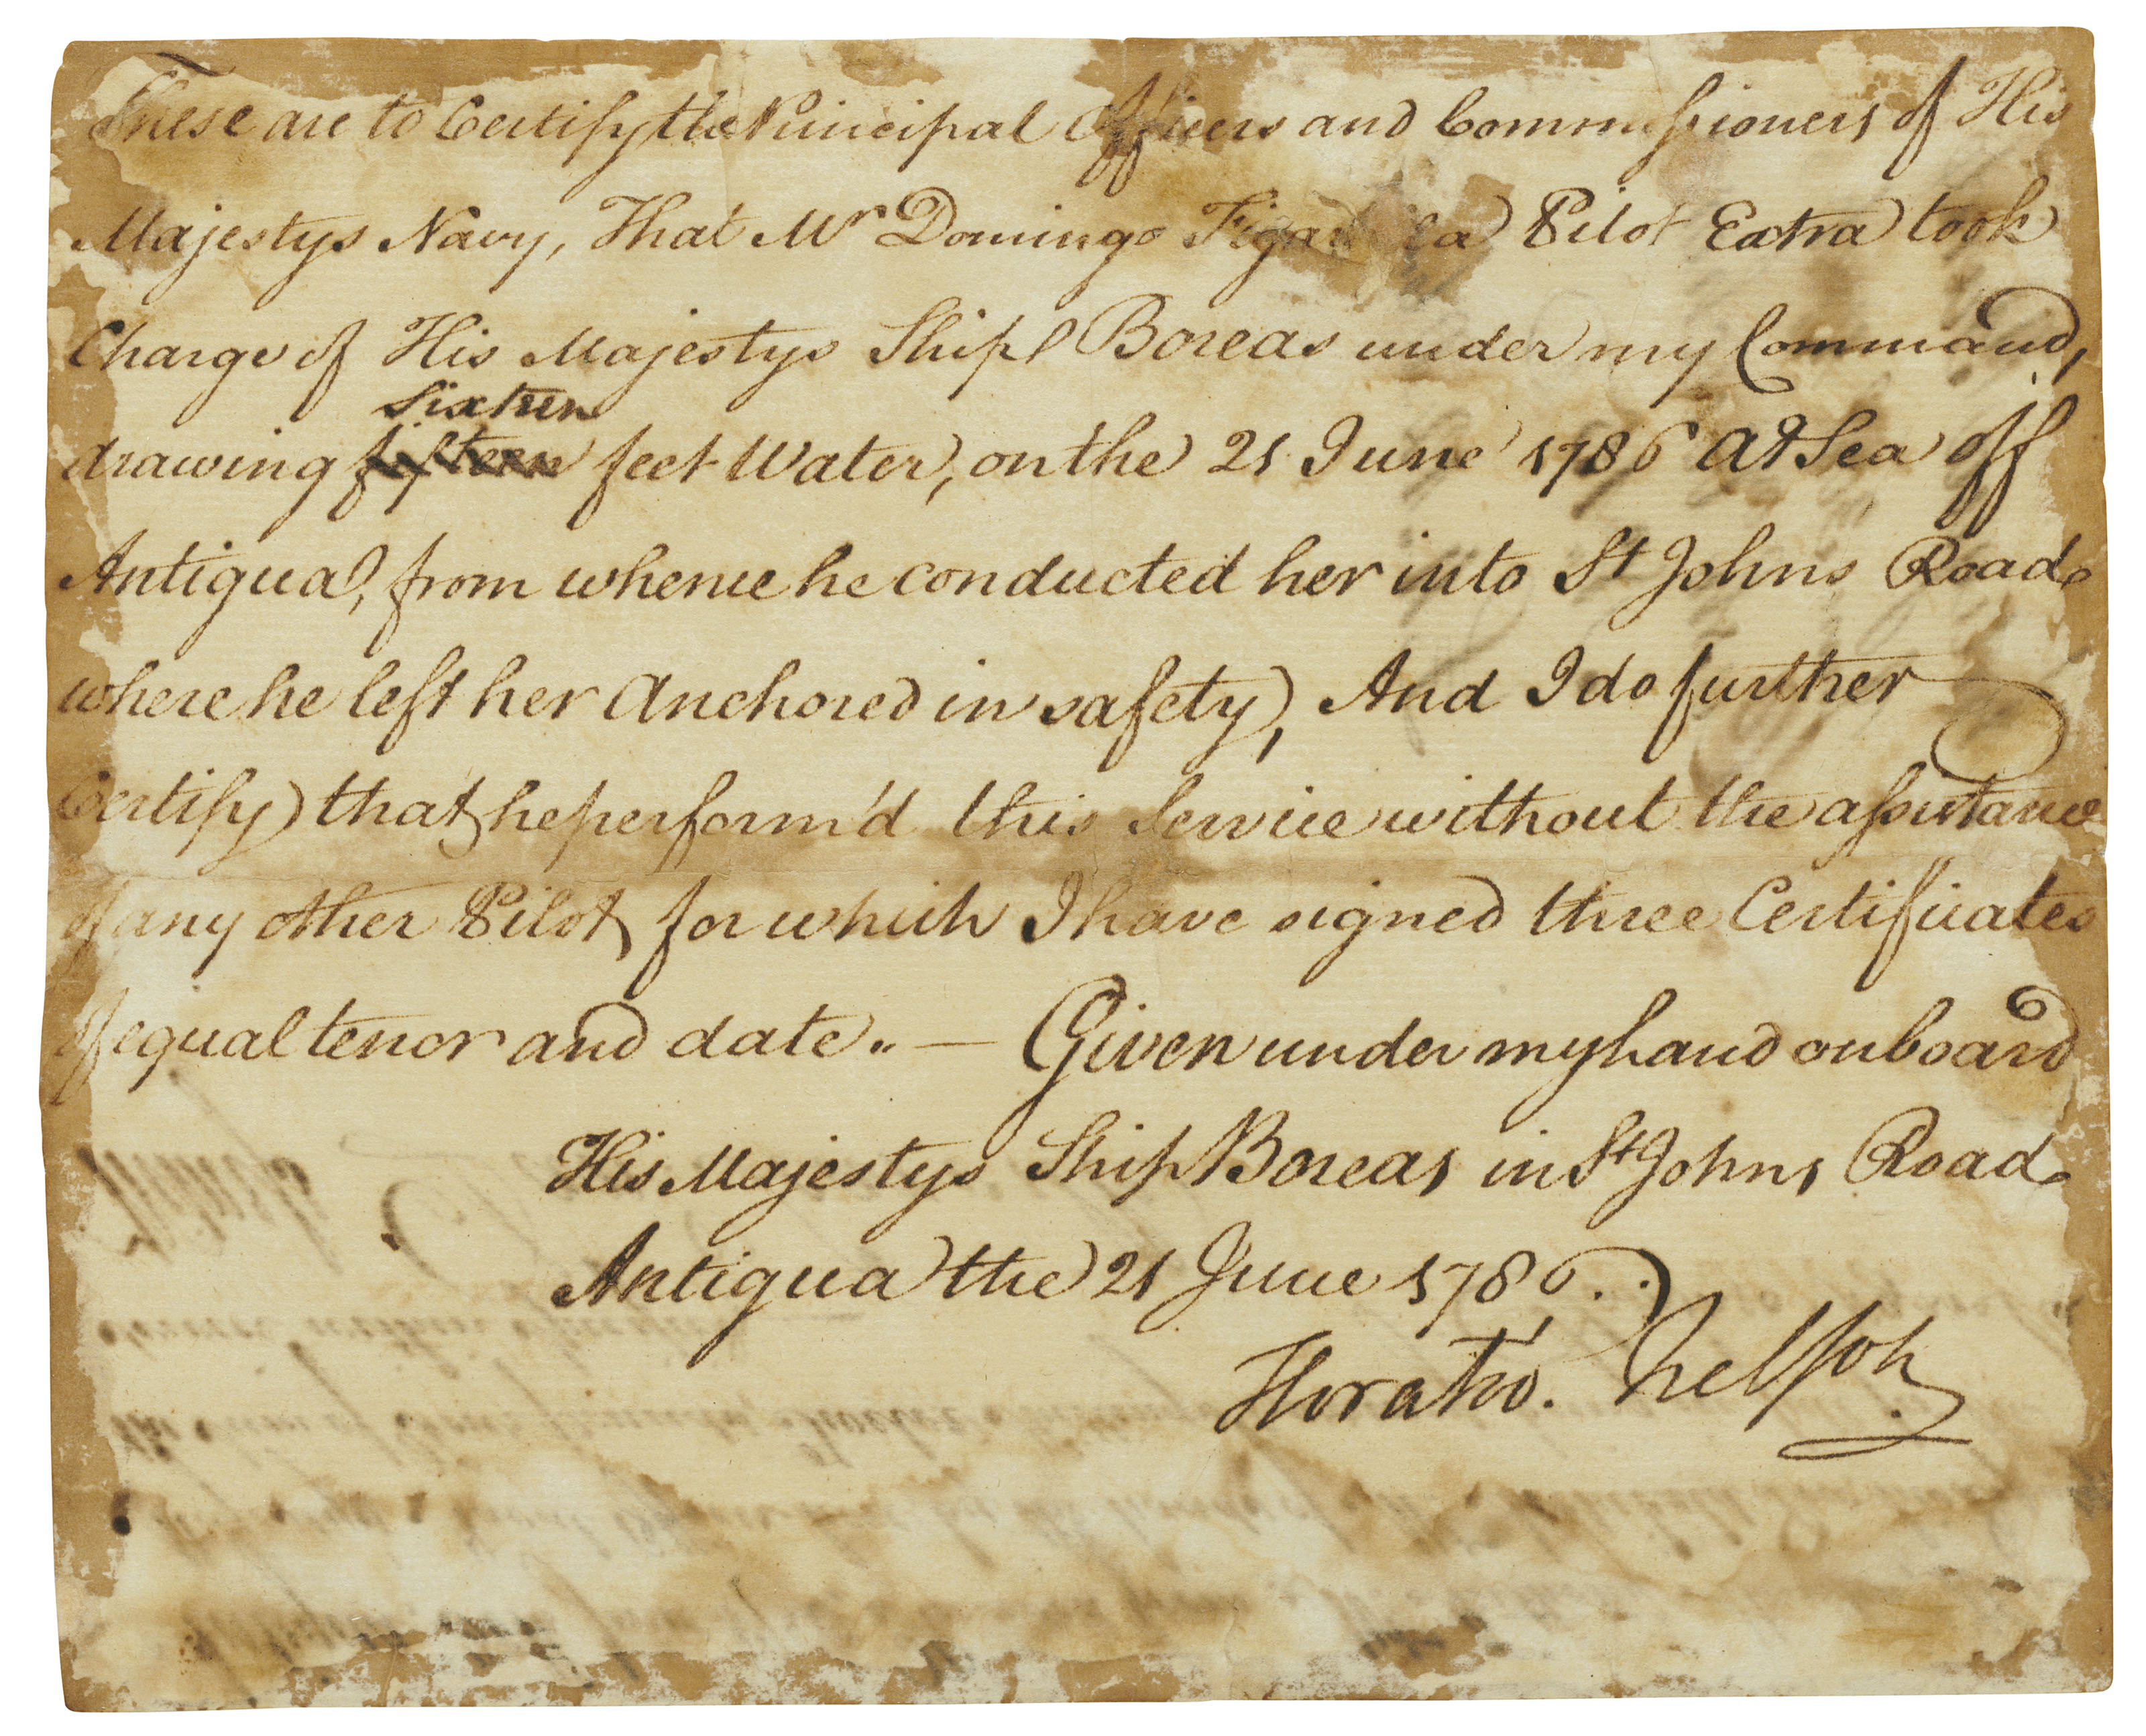 These are to Certify the Principal Officers and Commissioners of His
Majestys Navy, That Mr Domingo Pilot Extra took
Charge of His Majestys Ship Boreas under my Command,
sixteen
drawing fifteen feet Water, on the 21 June 1786 At Sea off
Antigua, from whence he conducted her into St Johns Road
where he left her Anchored in safety, And I do further
Certify that he perform'd this Service without the assistance
of any other Pilot, for which I have signed three Certificates
of equal tenor and date.. — Given under my hand on board
His Majestys Ship Boreas in St Johns Road
Antigua the 21 June 1786.
Horatio. Nelson